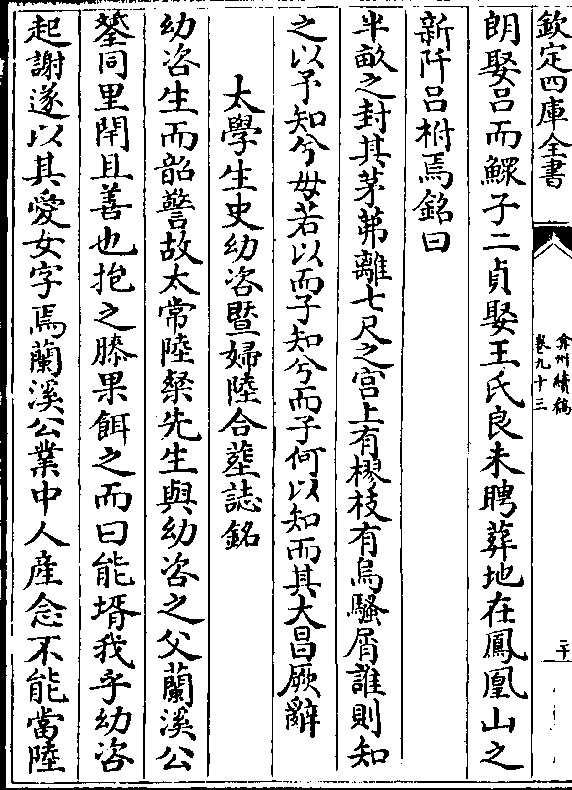 欽定四庫全書
弇州續稿
卷九十三
二十
朗娶呂而鰥子二貞娶王氏良未聘葬地在鳳凰山之
新阡呂祔焉銘曰
半畝之封其茅茀離七尺之宫上有樛枝有烏騷屑誰則知
之以予知兮毋若以而子知兮而子何以知而其大昌厥辭
太學生史幼咨暨婦陸合葬誌銘
幼咨生而韶警故太常陸粲先生與幼咨之父蘭溪公
鎣同里閈且善也抱之膝果餌之而曰能壻我乎幼咨
起謝遂以其愛女字焉蘭溪公業中人產念不能當陸